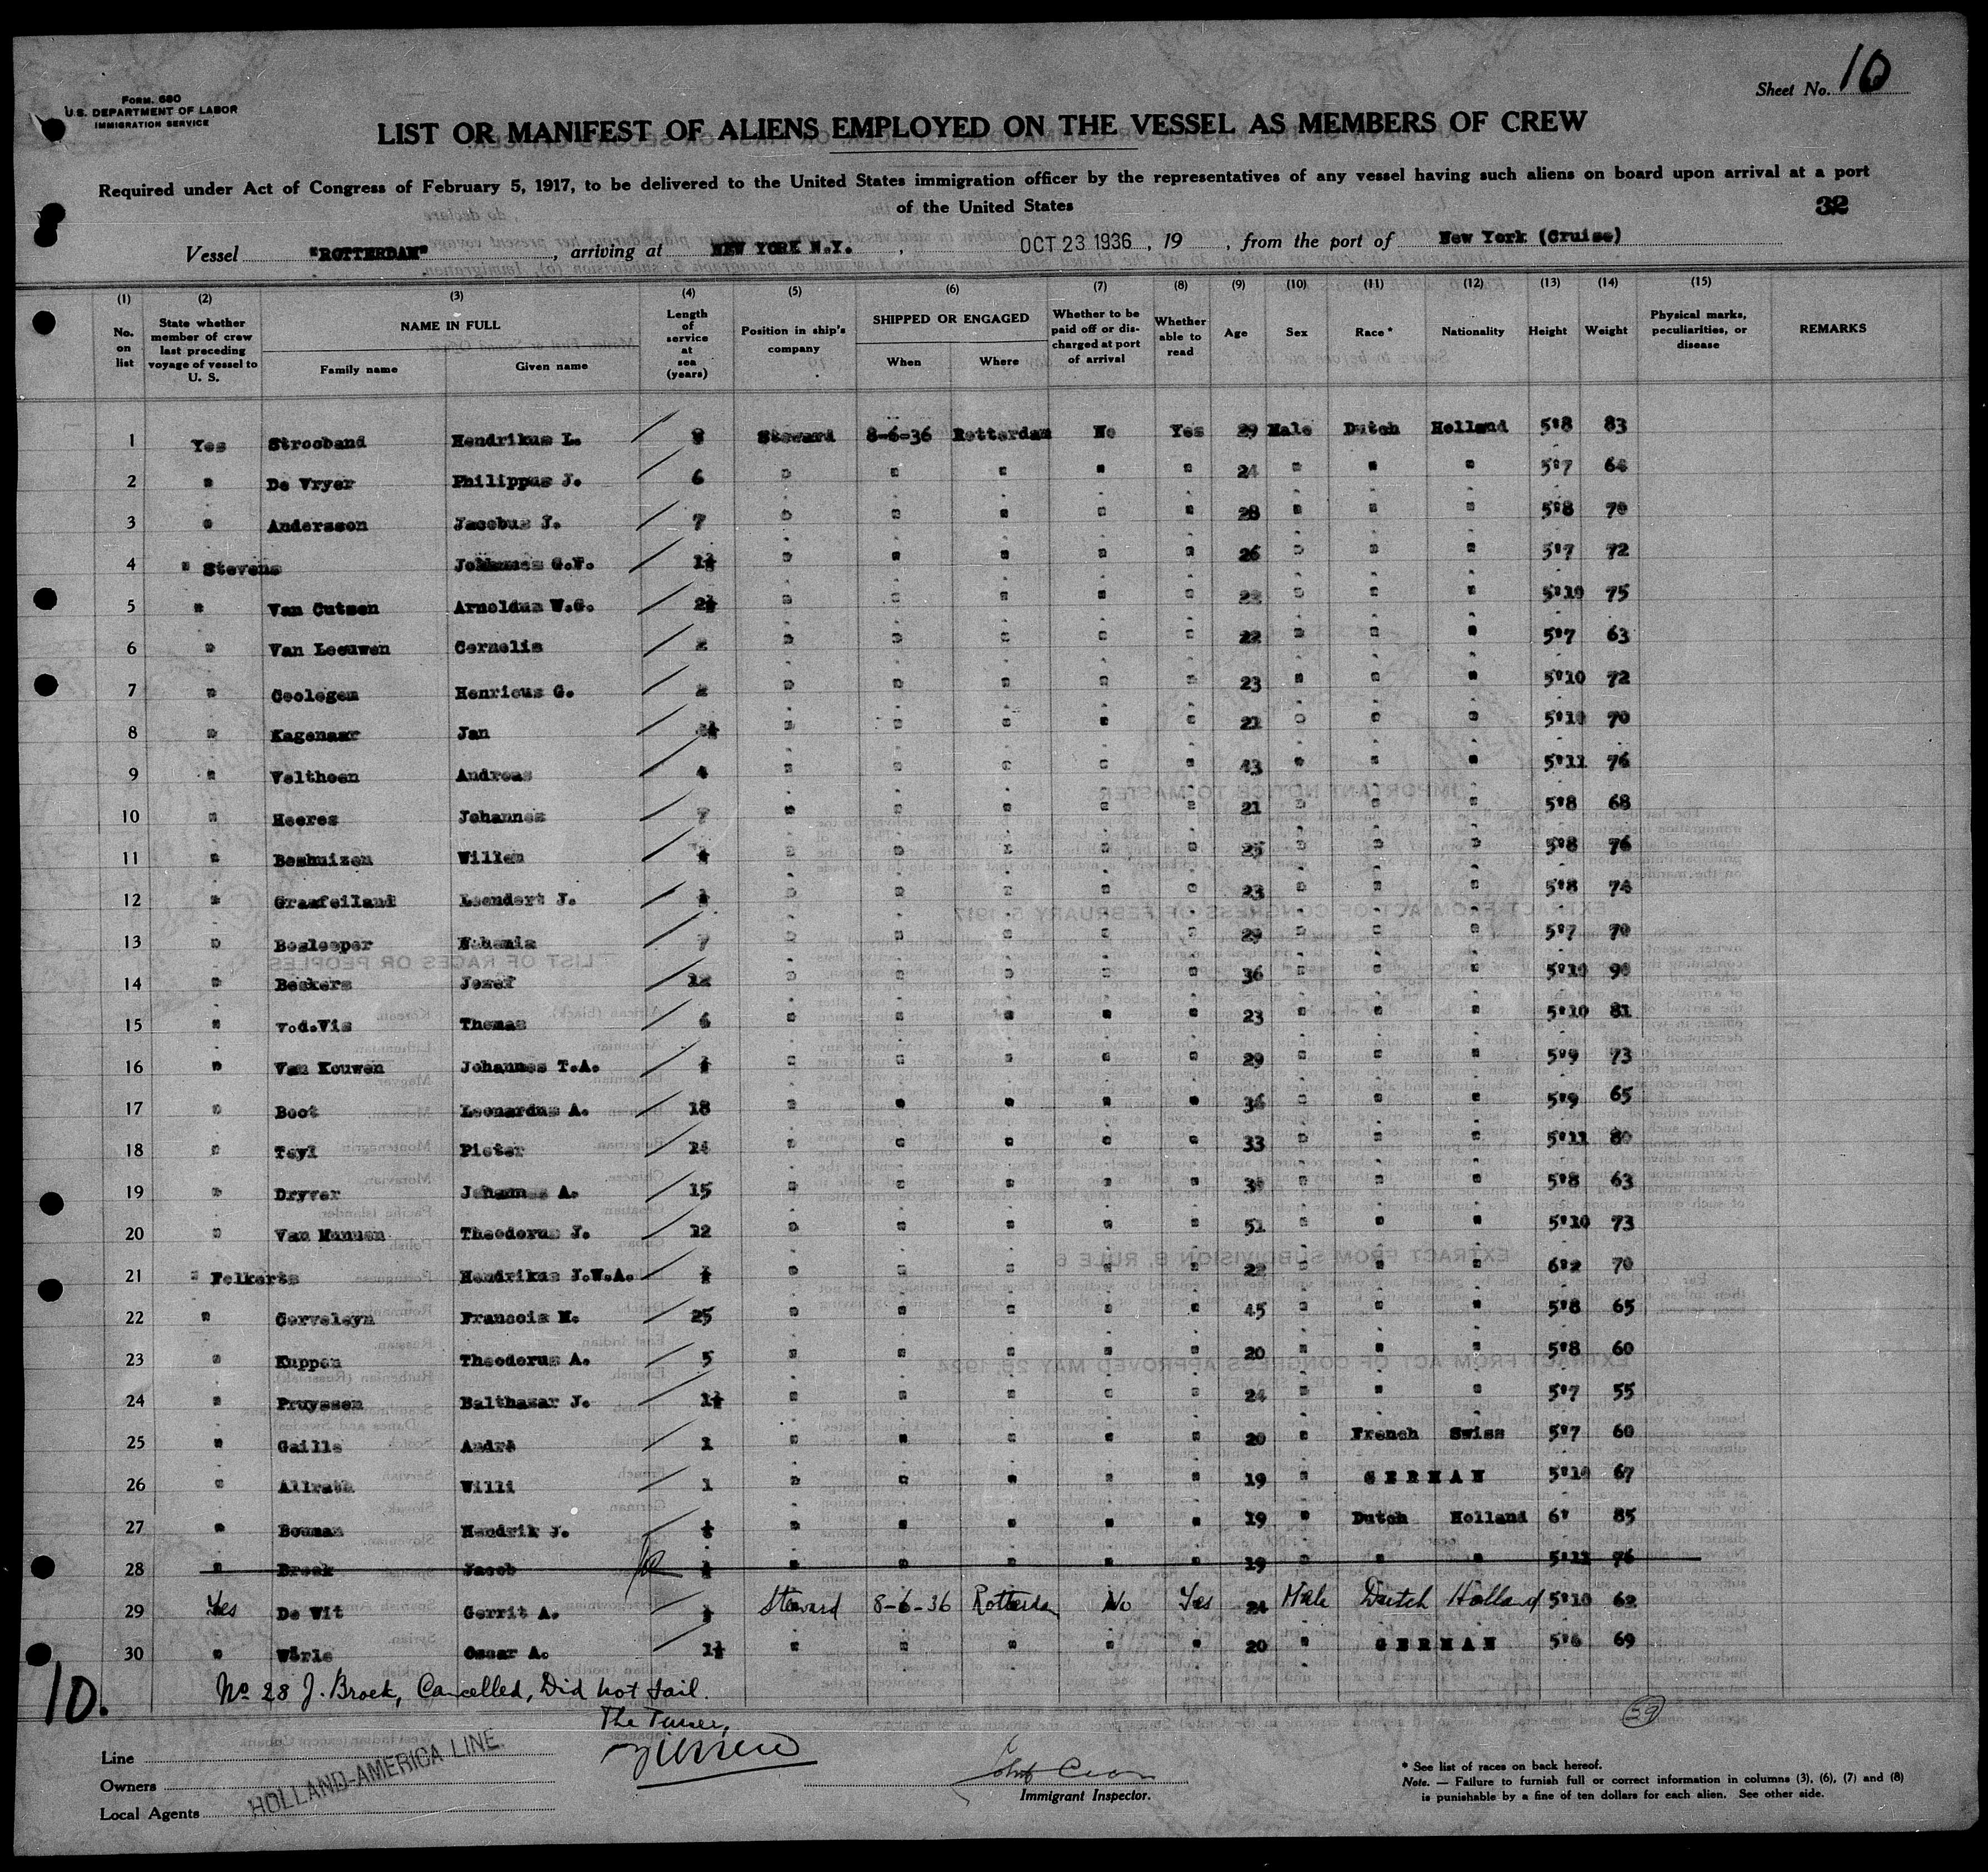 FORM 680
U.S. DEPARTMENT OF LABOR
IMMIGRATION SERVICE
Sheet No. 10
LIST OR MANIFEST OF ALIENS EMPLOYED ON THE VESSEL AS MEMBERS OF CREW
Required under Act of Congress of February 5, 1917, to be delivered to the United States immigration officer by the representatives of any vessel having such aliens on board upon arrival at a port
of the United States
32
Vessel "ROTTERDAM", arriving at NEW YORK N.Y., OCT 23 1936, 19 , from the port of New York (Cruise)
(1) (2) (3) (4) (5) (6) (7) (8) (9) (10) (11) (12) (13) (14) (15)
No. on list
State whether member of crew last preceding voyage of vessel to U. S.
NAME IN FULL
Family name
Given name
Length of service at sea (years)
Position in ship's company
SHIPPED OR ENGAGED
When
Where
Whether to be paid off or discharged at port of arrival
Whether able to read
Age
Sex
Race *
Nationality
Height
Weight
Physical marks, peculiarities, or disease
REMARKS
1 Yes Strooband Hendrikus L. 8 Steward 8-6-36 Rotterdam No Yes 29 Male Dutch Holland 5'8 83
2 " De Vryer Philippus J. 6 " " " " " 24 " " " 5'7 64
3 " Andersson Jacobus J. 7 " " " " " 28 " " " 5'8 70
4 " Stevens Johannes G.F. 1½ " " " " " 26 " " " 5'7 72
5 " Van Cutsen Arnoldus W.G. 2½ " " " " " 22 " " " 5'10 75
6 " Van Leeuwen Cornelis 2 " " " " " 22 " " " 5'7 63
7 " Coolegem Henricus G. 2 " " " " " 23 " " " 5'10 72
8 " Kagenaar Jan " " " " " 21 " " " 5'10 70
9 " Velthoen Andreas 4 " " " " " 43 " " " 5'11 76
10 " Heeres Johannes 7 " " " " " 21 " " " 5'8 68
11 " Beshuizen Willem ½ " " " " " 25 " " " 5'8 76
12 " Graafeiland Leendert J. ½ " " " " " 23 " " " 5'8 74
13 " Besleeper Nehemia 7 " " " " " 29 " " " 5'7 70
14 " Beskers Jozef 12 " " " " " 36 " " " 5'10 90
15 " v.d.Vis Thomas 6 " " " " " 23 " " " 5'10 81
16 " Van Kouwen Johannes T.A. ½ " " " " " 29 " " " 5'9 73
17 " Boot Leonardus A. 18 " " " " " 36 " " " 5'9 65
18 " Teyl Pieter 14 " " " " " 33 " " " 5'11 80
19 " Dryver Johannes A. 15 " " " " " " " " 5'8 63
20 " Van Munuen Theodorus J. 12 " " " " " 51 " " " 5'10 73
21 " Folkerts Hendrikus J.W.A. ½ " " " " " 22 " " " 6'2 70
22 " Corveleyn Francois M. 25 " " " " " 45 " " " 5'8 65
23 " Kuppen Theodorus A. 5 " " " " " 20 " " " 5'8 60
24 " Pruyssen Balthazar J. 1½ " " " " " 24 " " " 5'7 55
25 " Gaille André 1 " " " " " 20 " French Swiss 5'7 60
26 " Allrath Willi 1 " " " " " 19 " GERMAN 5'10 67
27 " Bouman Hendrik J. ½ " " " " " 19 " Dutch Holland 6' 85
28 " Broek Jacob ½ " " " " " 19 " " " 5'11 76
29 Yes De Wit Gerrit A. ½ Steward 8-6-36 Rotterdam No Yes 24 Male Dutch Holland 5'10 62
30 " Wörle Oscar A. 1½ " " " " " 20 " GERMAN 5'6 69
No 28 J. Broek, Cancelled, Did not sail.
10.
The Purser,
39
Line
Owners
Local Agents
HOLLAND-AMERICA LINE.
Immigrant Inspector.
* See list of races on back hereof.
Note. — Failure to furnish full or correct information in columns (3), (6), (7) and (8)
is punishable by a fine of ten dollars for each alien. See other side.